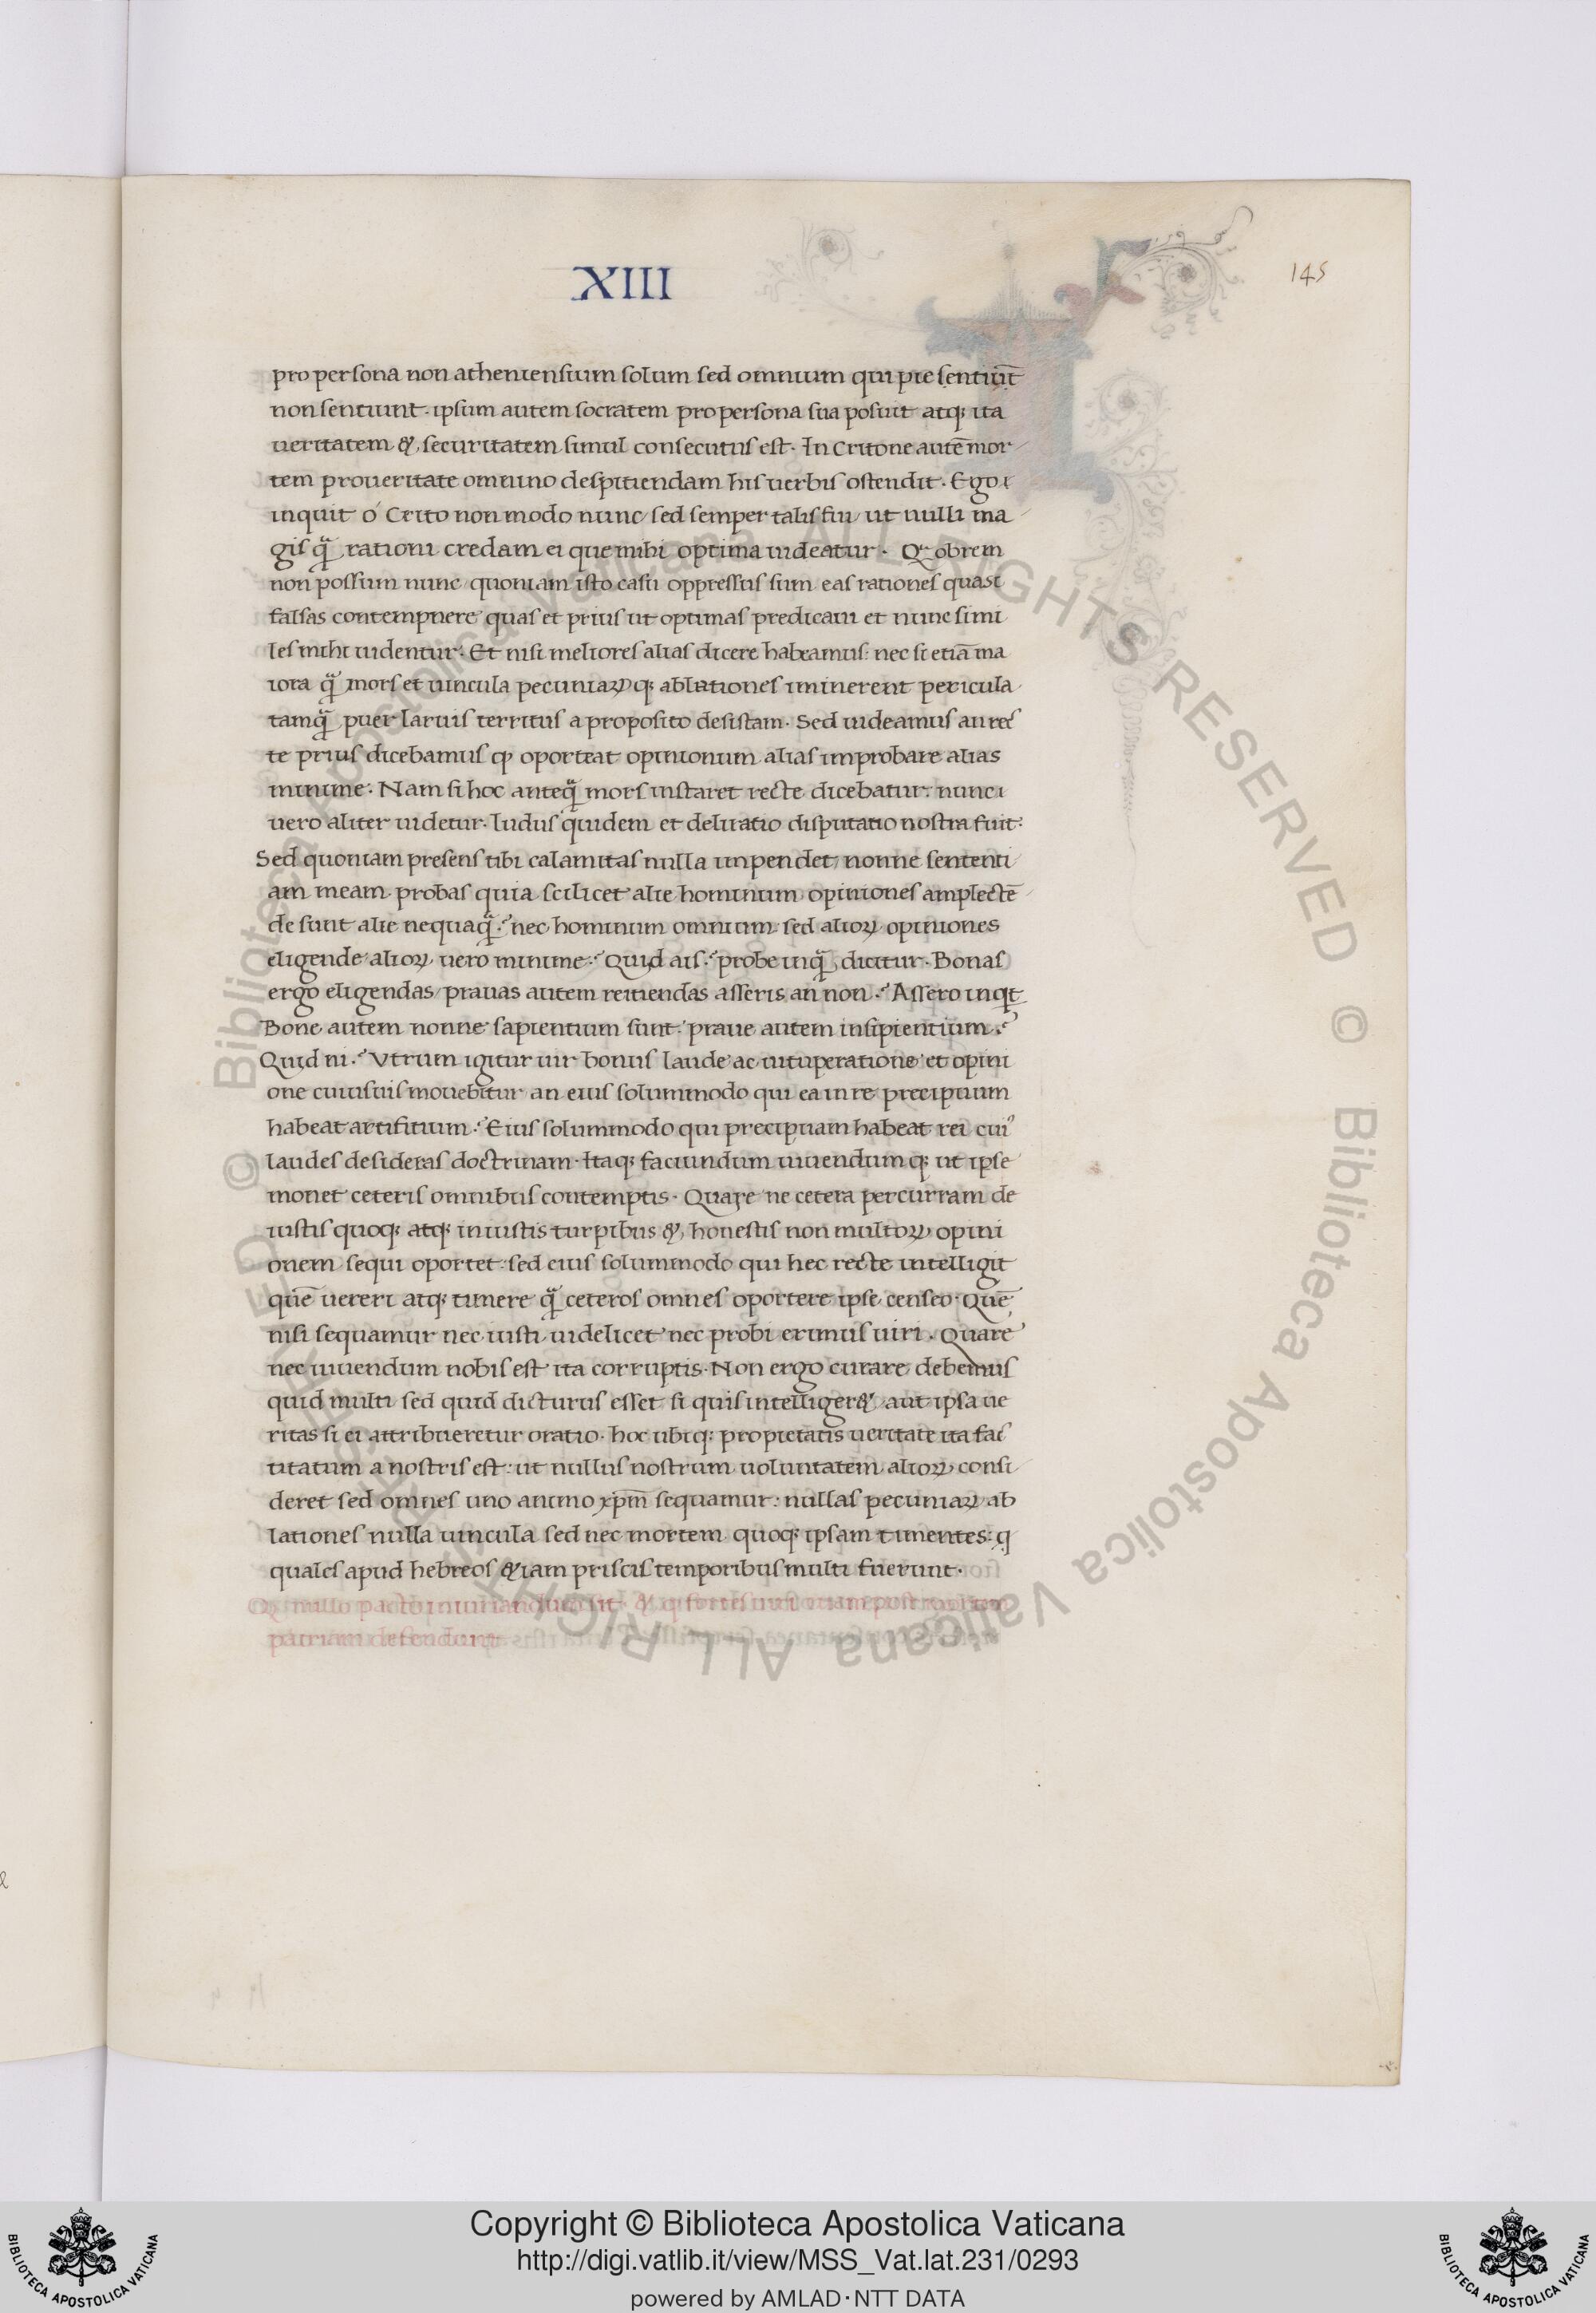 XIII
145
pro persona non atheniensium solum sed omnium qui pie sentiũt
non sentiunt. ipsum autem socratem pro persona sua posuit atq; ita
ueritatem &, securitatem simul consecutus est. In Critone autẽ mor
tem pro ueritate omnino despitiendam his uerbis ostendit. Ego
inquit o Crito non modo nunc sed semper talis fui ut nulli ma
gis q̃ rationi credam ei que mihi optima uideatur. Qã obrem
non possum nunc quoniam isto casu oppressus sum eas rationes quasi
falsas contempnere quas et prius ut optimas predicaui et nunc simi
les mihi uidentur. Et nisi meliores alias dicere habeamus: nec si etiã ma
iora q̃ mors et uincula pecuniaꝝ q; ablationes iminerent pericula
tamq̃ puer laruis territus a proposito desistam. Sed uideamus an rec
te prius dicebamus ꝙ oporteat opinionum alias improbare alias
minime. Nam si hoc anteq̃ mors instaret recte dicebatur: nunc
uero aliter uidetur. ludus quidem et deliratio disputatio nostra fuit:
Sed quoniam presens tibi calamitas nulla impendet, nonne sententi
am meam probas quia scilicet alie hominum opiniones amplectẽ
de sunt alie nequaq̃.? nec hominum omnium sed alioꝝ opiniones
eligende alioꝝ uero minime.? Quid ais.? probe inq̃ dicitur. Bonas
ergo eligendas, prauas autem reitiendas asseris an non.? Assero inqt
Bone autem nonne sapientium sunt. praue autem insipientium.?
Quid ni.? Vtrum igitur uir bonus laude ac uituperatione et opini
one cuiusuis mouebitur an eius solummodo qui ea in re precipuum
habeat artifitium.? Eius solummodo qui precipuam habeat rei cui⁹
laudes desideras doctrinam. Itaq; faciundum uiuendumq; ut ipse
monet ceteris omnibus contemptis. Quare ne cetera percurram de
iustis quoq; atq; iniustis turpibus &, honestis non multoꝝ opini
onem sequi oportet: sed eius solummodo qui hec recte intelligit
quẽ uereri atq; timere q̃ ceteros omnes oportere ipse censeo. Quẽ
nisi sequamur nec iusti uidelicet nec probi erimus uiri. Quare
nec uiuendum nobis est ita corruptis. Non ergo curare debemus
quid multi sed quid dicturus esset si quis intelliger& aut ipsa ue
ritas si ei attribueretur oratio. hoc ubiq; pro pietatis ueritate ita fac
titatum a nostris est: ut nullus nostrum uoluntatem alioꝝ consi
deret sed omnes uno animo xp̃m sequamur: nullas pecuniaꝝ ab
lationes nulla uincula sed nec mortem quoq; ipsam timentes: q
quales apud hebreos &iam priscis temporibus multi fuerunt.
nullo pacto iniurianduз sit. &
patriam defendunt.
Copyright © Biblioteca Apostolica Vaticana
http://digi.vatlib.it/view/MSS_Vat.lat.231/0293
powered by AMLAD·NTT DATA
BIBLIOTECA APOSTOLICA VATICANA
BIBLIOTECA APOSTOLICA VATICANA
© Biblioteca Apostolica Vaticana ALL RIGHTS RESERVED
© Biblioteca Apostolica Vaticana ALL RIGHTS RESERVED